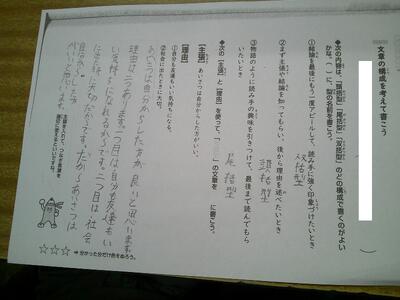 文章の構成を考えて書こう
(　　　　)
◆次の内容は、「頭括型」「尾括型」「双括型」のどの構成で書くのがよい
かな。(　)に、型の名前を書こう。
①結論を最後にもう一度アピールして、読み手に強く印象づけたいとき
双括型
②まず主張や結論を知ってもらい、後から理由を述べたいとき
頭括型
③物語のように読み手の興味を引きつけて、最後まで読んでもら
いたいとき
尾括型
◆次の【主張】と【理由】を使って、「　　」の文章を　に書こう。
【主張】 あいさつは自分からした方がいい。
【理由】
①自分も友達もいい気持ちになる。
②社会に出たときに大切。
あいさつは自分からした方が良いと思います。
理由は二つあります。一つ目は自分も友達もい
い気持ちになれるからです。二つ目は社会
に出た時に大切だからです。だからあいさつは
自分から
がいいと思います。
主語を入れて、つなぎ言葉を
適切に使えるといいですね。
☆☆☆ ➡分かった分だけ色をぬろう。